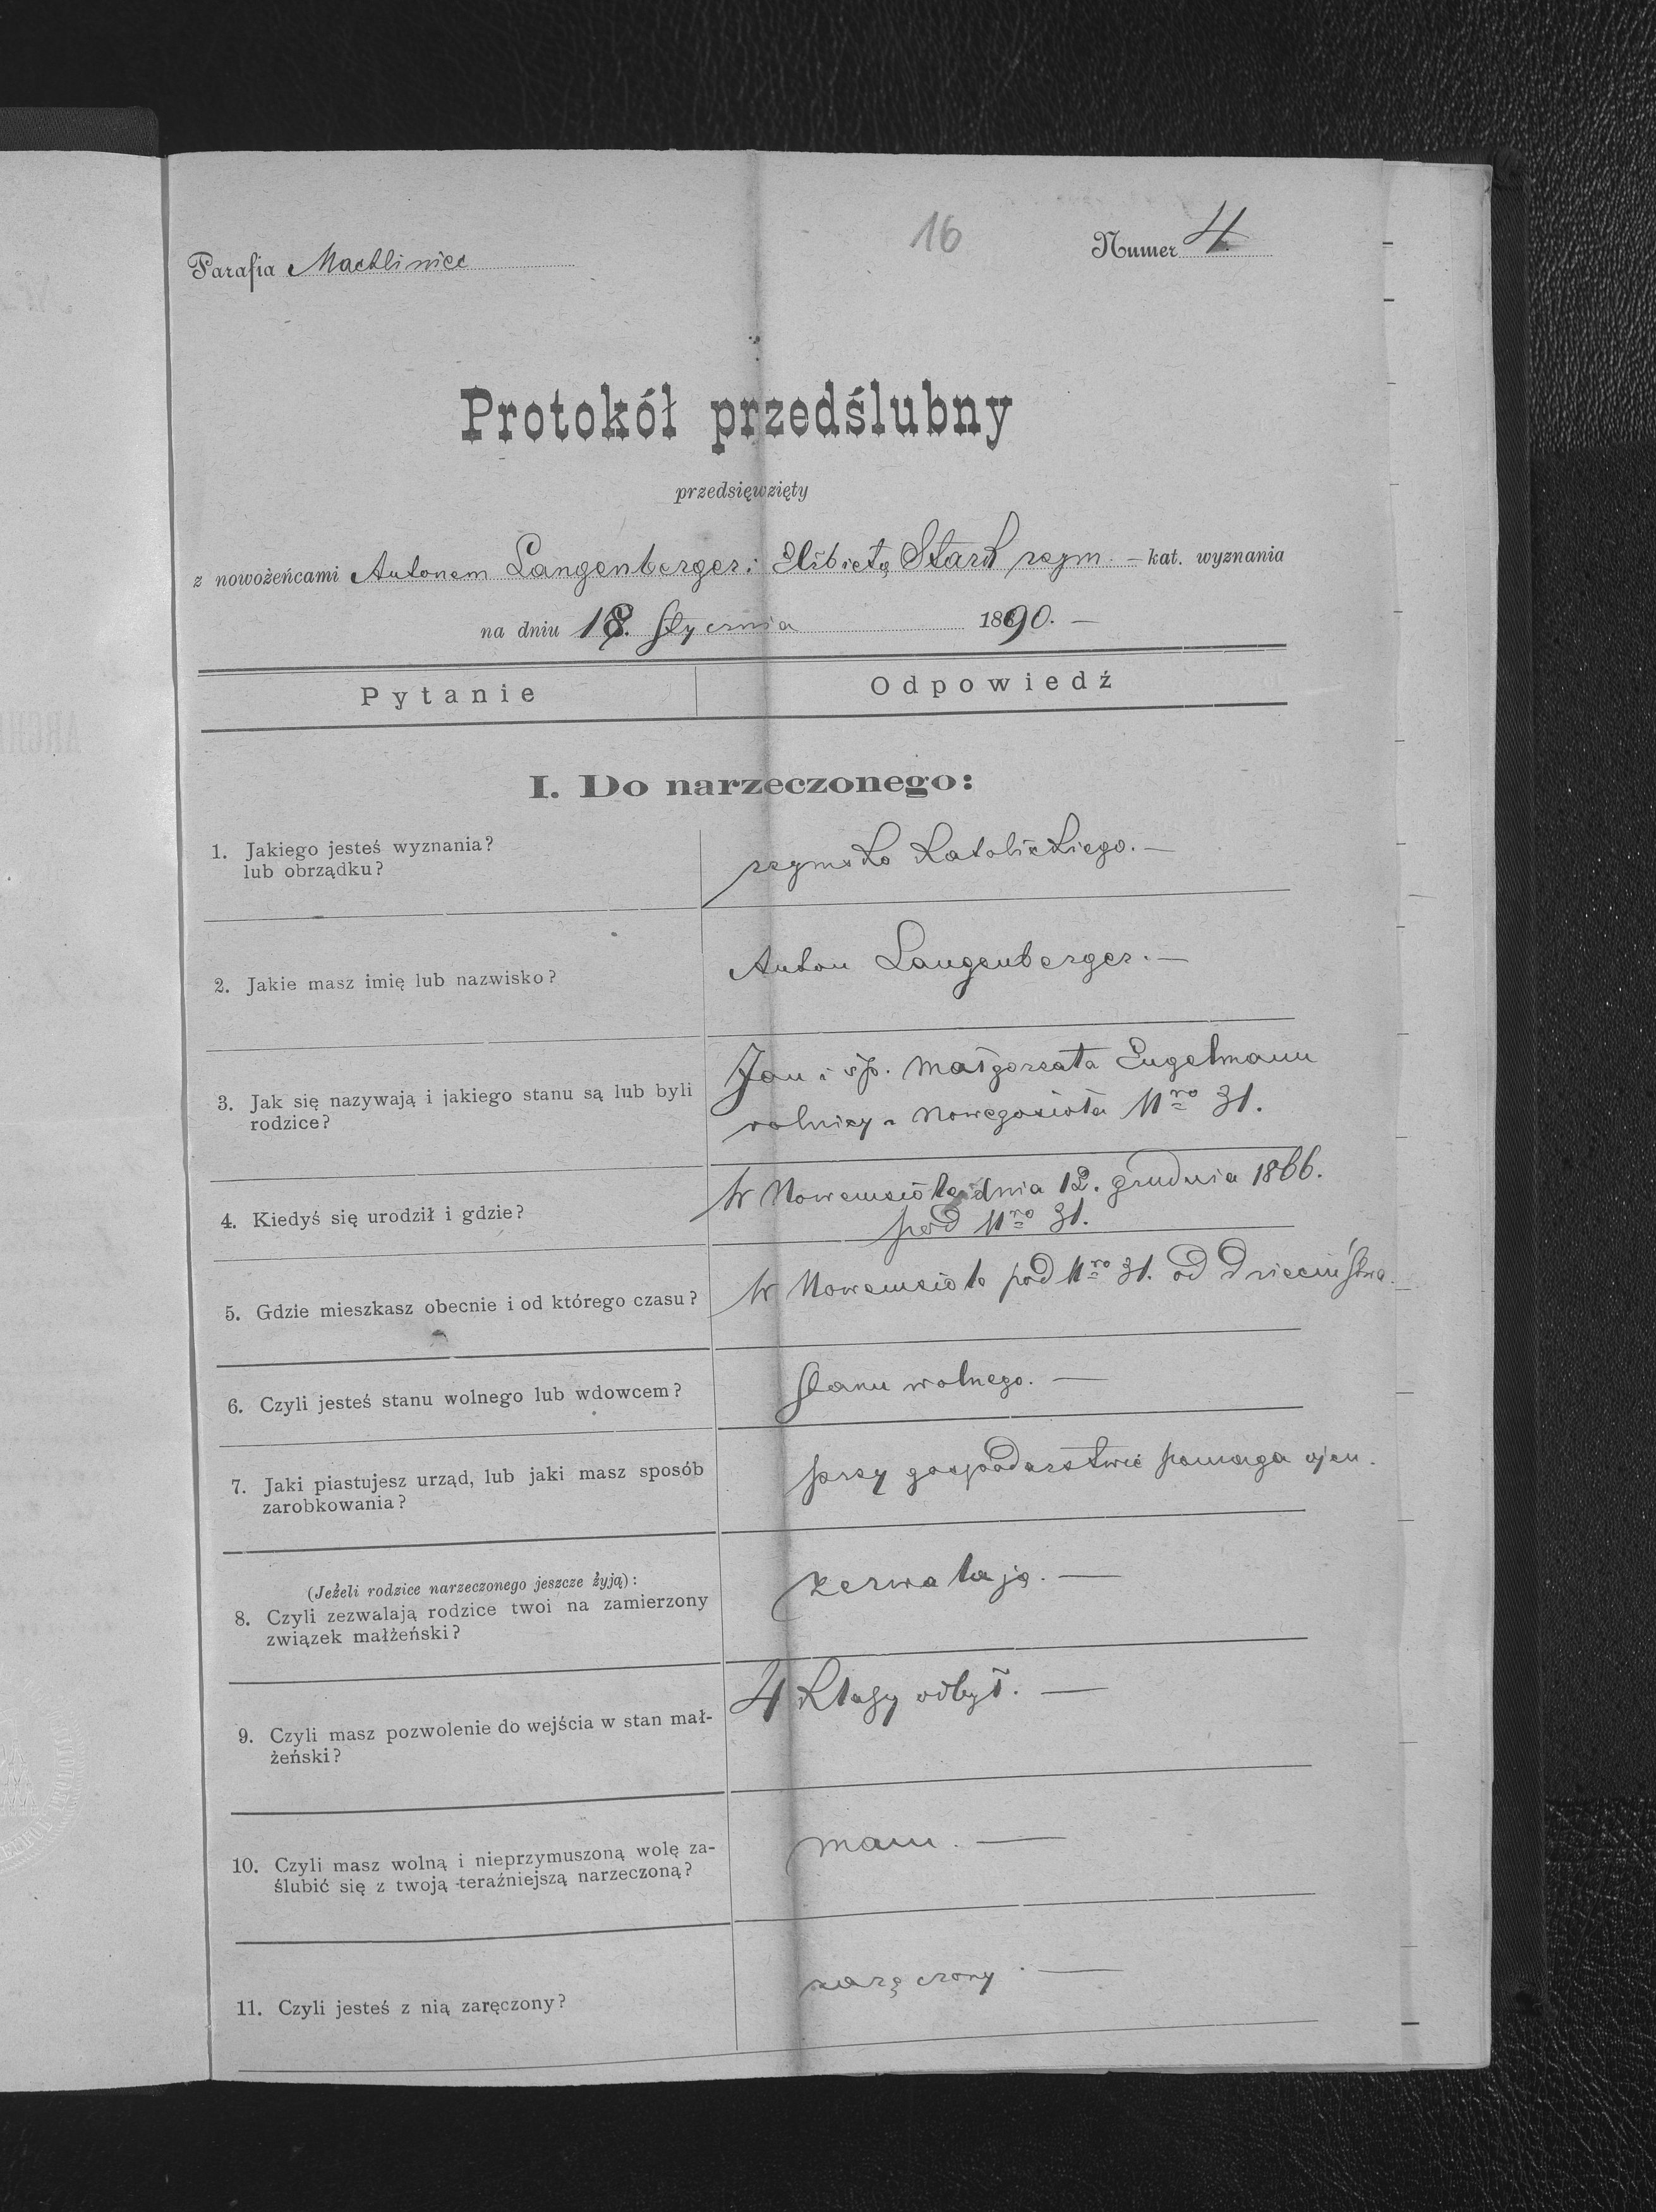 16
Parafia Machliniec Numer 4.
Protokół przedślubny
przedsięwzięty
z nowożeńcami Antonem Langenberger i Elżbietą Stark rzym. – kat. wyznania
na dniu 18. Stycznia 1890. –
Pytanie Odpowiedź
I. Do narzeczonego:
1. Jakiego jesteś wyznania?
lub obrządku?
rzymsko katolickiego. –
2. Jakie masz imię lub nazwisko?
Anton Langenberger. –
3. Jak się nazywają i jakiego stanu są lub byli
rodzice?
Jan i śp. Małgorzata Engelmann
rolnicy z Nowegosioła Nro 31.
4. Kiedyś się urodził i gdzie?
W Nowemsiole dnia 12. grudnia 1866.
pod Nro 31.
5. Gdzie mieszkasz obecnie i od którego czasu?
W Nowemsiole pod Nro 31. od dzieciństwa.
6. Czyli jesteś stanu wolnego lub wdowcem?
Stanu wolnego. –
7. Jaki piastujesz urząd, lub jaki masz sposób
zarobkowania?
przy gospodarstwie pomaga ojcu.
(Jeżeli rodzice narzeczonego jeszcze żyją):
8. Czyli zezwalają rodzice twoi na zamierzony
związek małżeński?
zezwalają. –
9. Czyli masz pozwolenie do wejścia w stan mał-
żeński?
4 klasy odbył. –
10. Czyli masz wolną i nieprzymuszoną wolę za-
ślubić się z twoją teraźniejszą narzeczoną?
mam. –
11. Czyli jesteś z nią zaręczony?
zaręczony. –